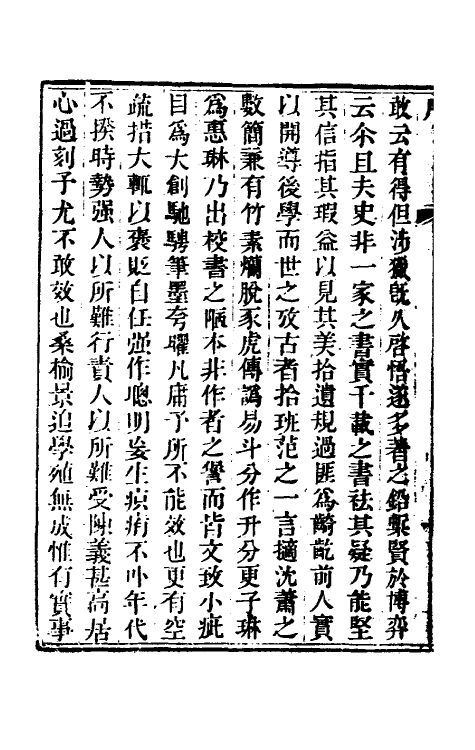 敢云有得但涉獵旣久啓悟遂多著之鉛槧賢於博弈
云尒且夫史非一家之書實千載之書祛其疑乃能堅
其信指其瑕益以見其美拾遺規過匪爲齮齕前人實
以開導後學而世之攷古者拾班范之一言擿沈蕭之
數簡兼有竹素爛脫豕虎傳譌易斗分作升分更子琳
爲惠琳乃出校書之陋本非作者之諐而皆文致小疵
目爲大創馳騁筆墨夸曜凡庸予所不能效也更有空
疏措大輒以襃貶自任强作聰明妄生疻痏不卟年代
不揆時勢强人以所難行責人以所難受陳義甚高居
心過刻予尤不敢效也桑榆景迫學殖無成惟有實事